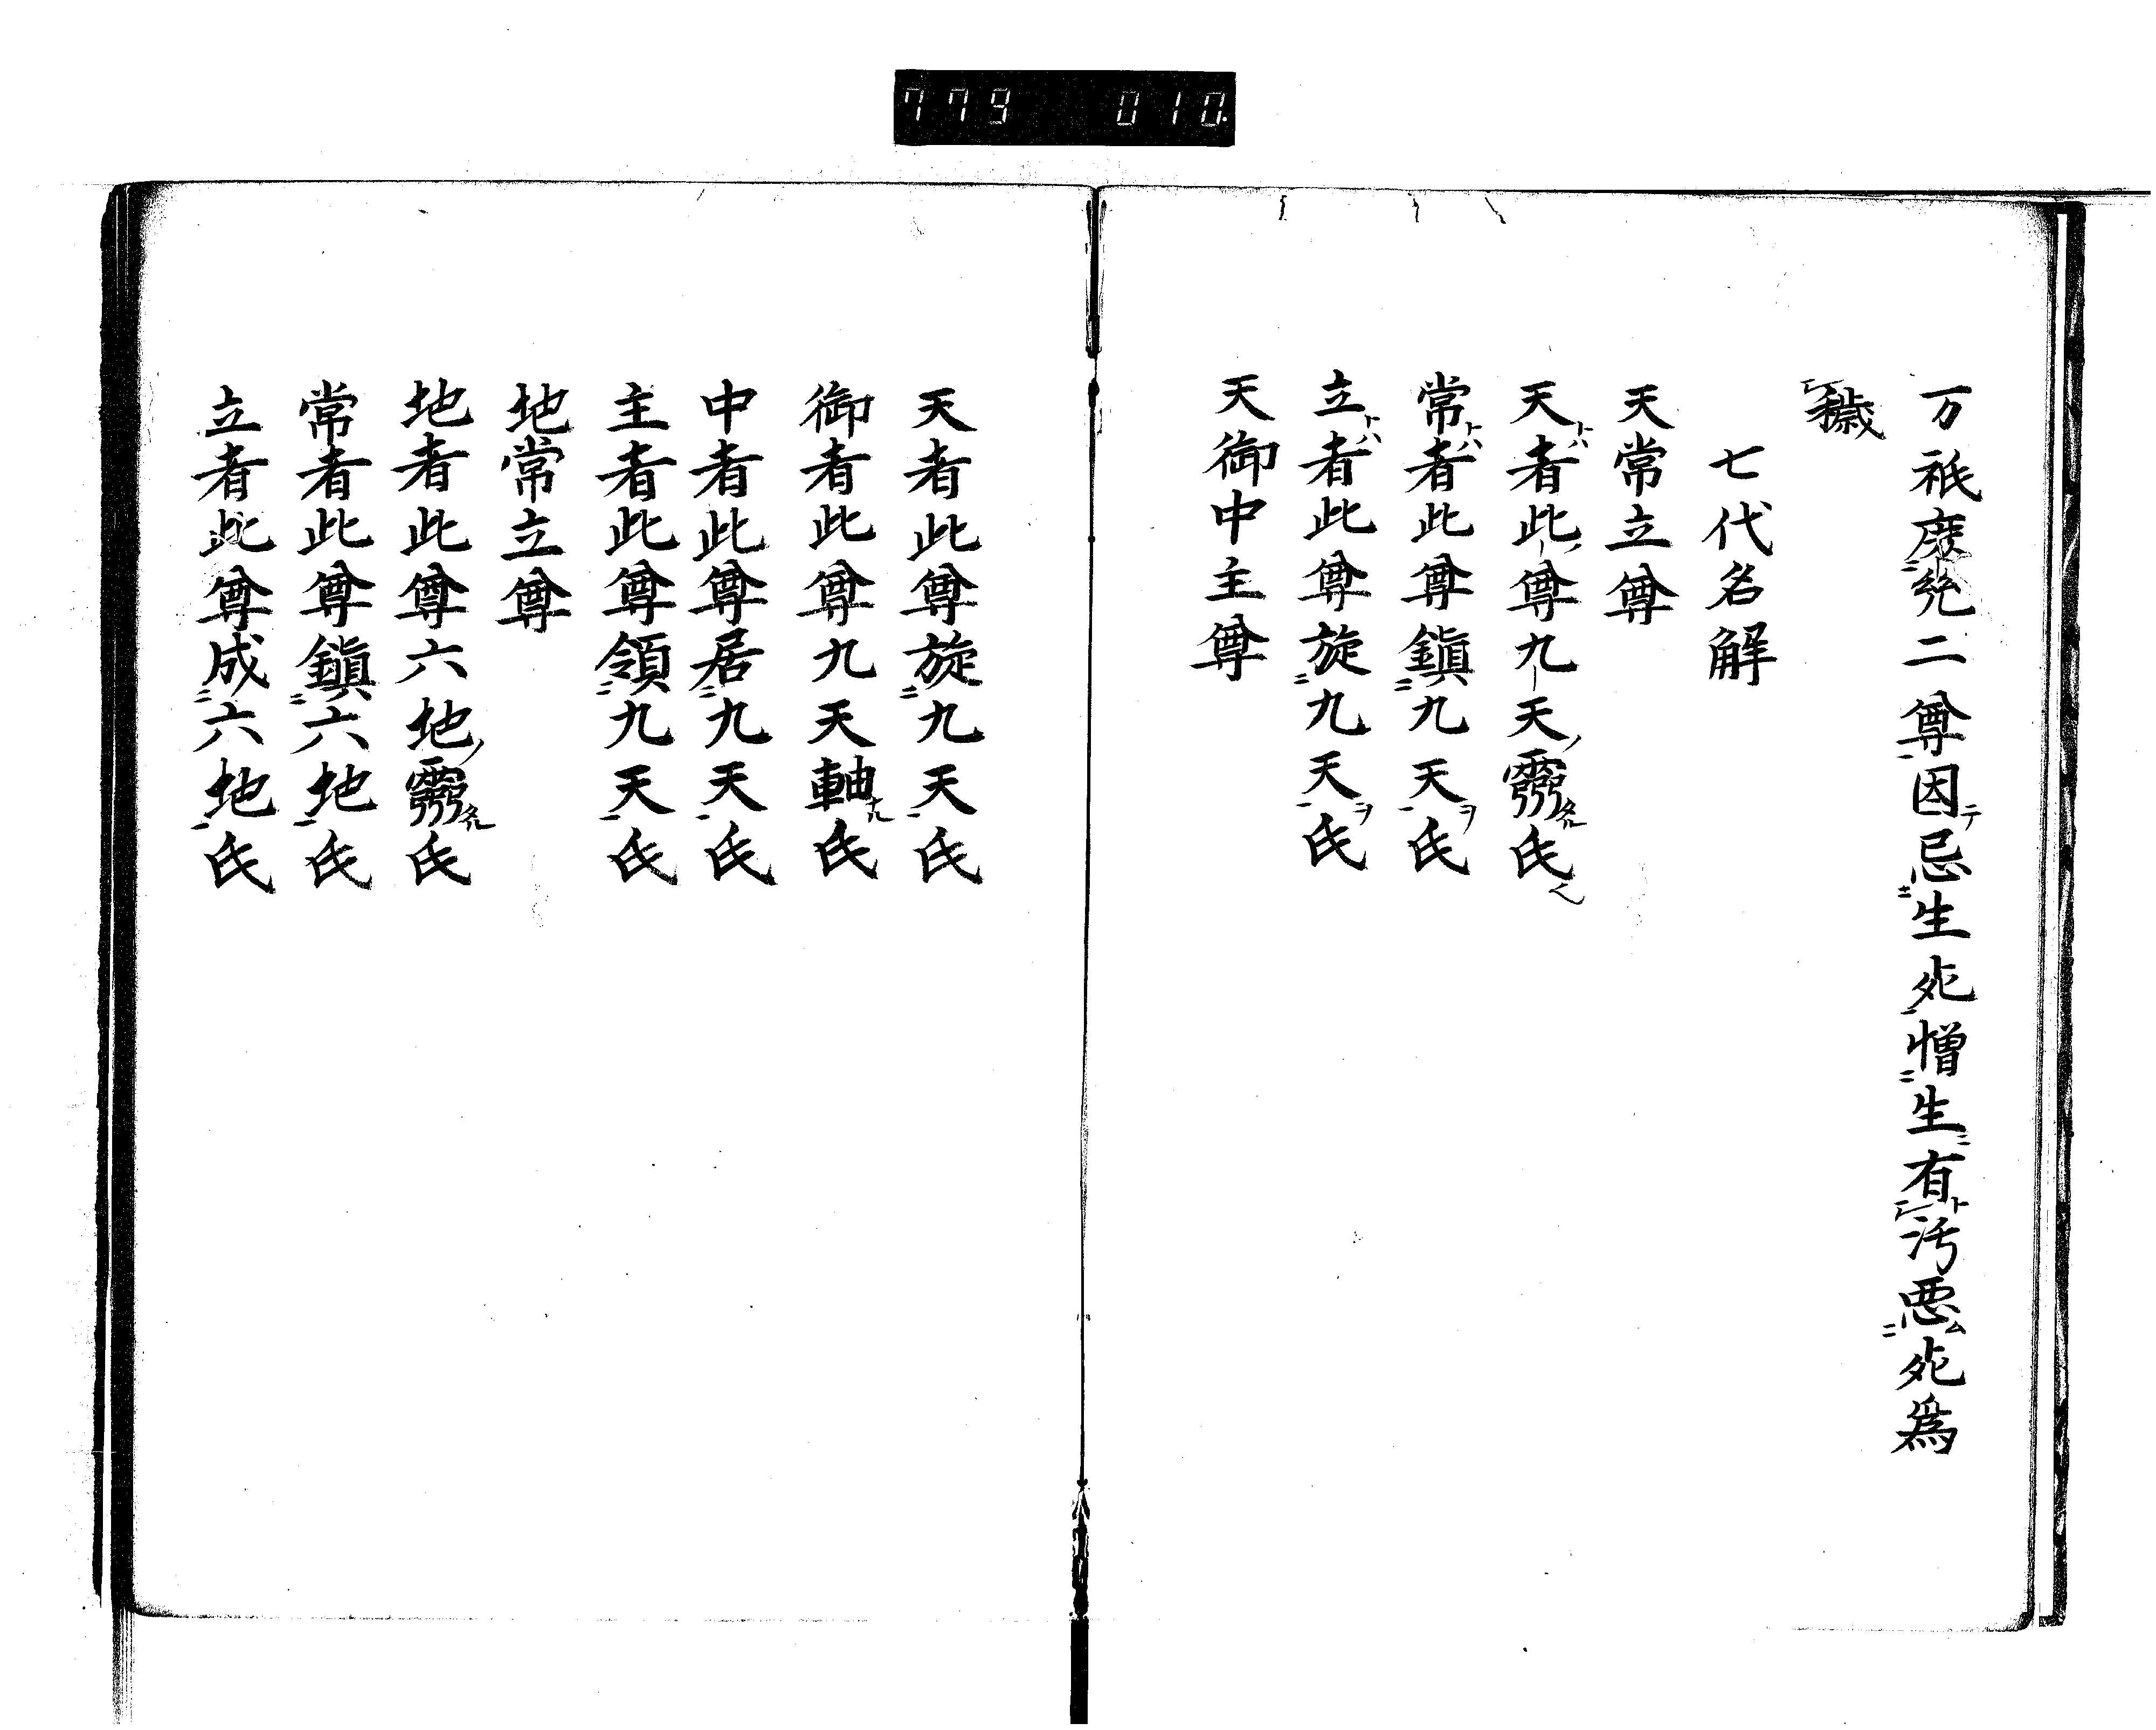 779 010.
万祇度兜二尊因テ忌生死憎生有ト汚悪ム死為
穢
七代名解
天常立尊
天トハ者此ノ尊九天ノ靈ナル氏
常トハ者此尊鎮九天ヲ氏
立トハ者此尊旋九天ヲ氏
天御中主尊
天者此尊旋九天氏
御者此尊九天軸ナル氏
中者此尊居九天氏
主者此尊領九天氏
地常立尊
地者此尊六地ノ靈ナル氏
常者此尊鎮六地氏
立者此尊成六地氏